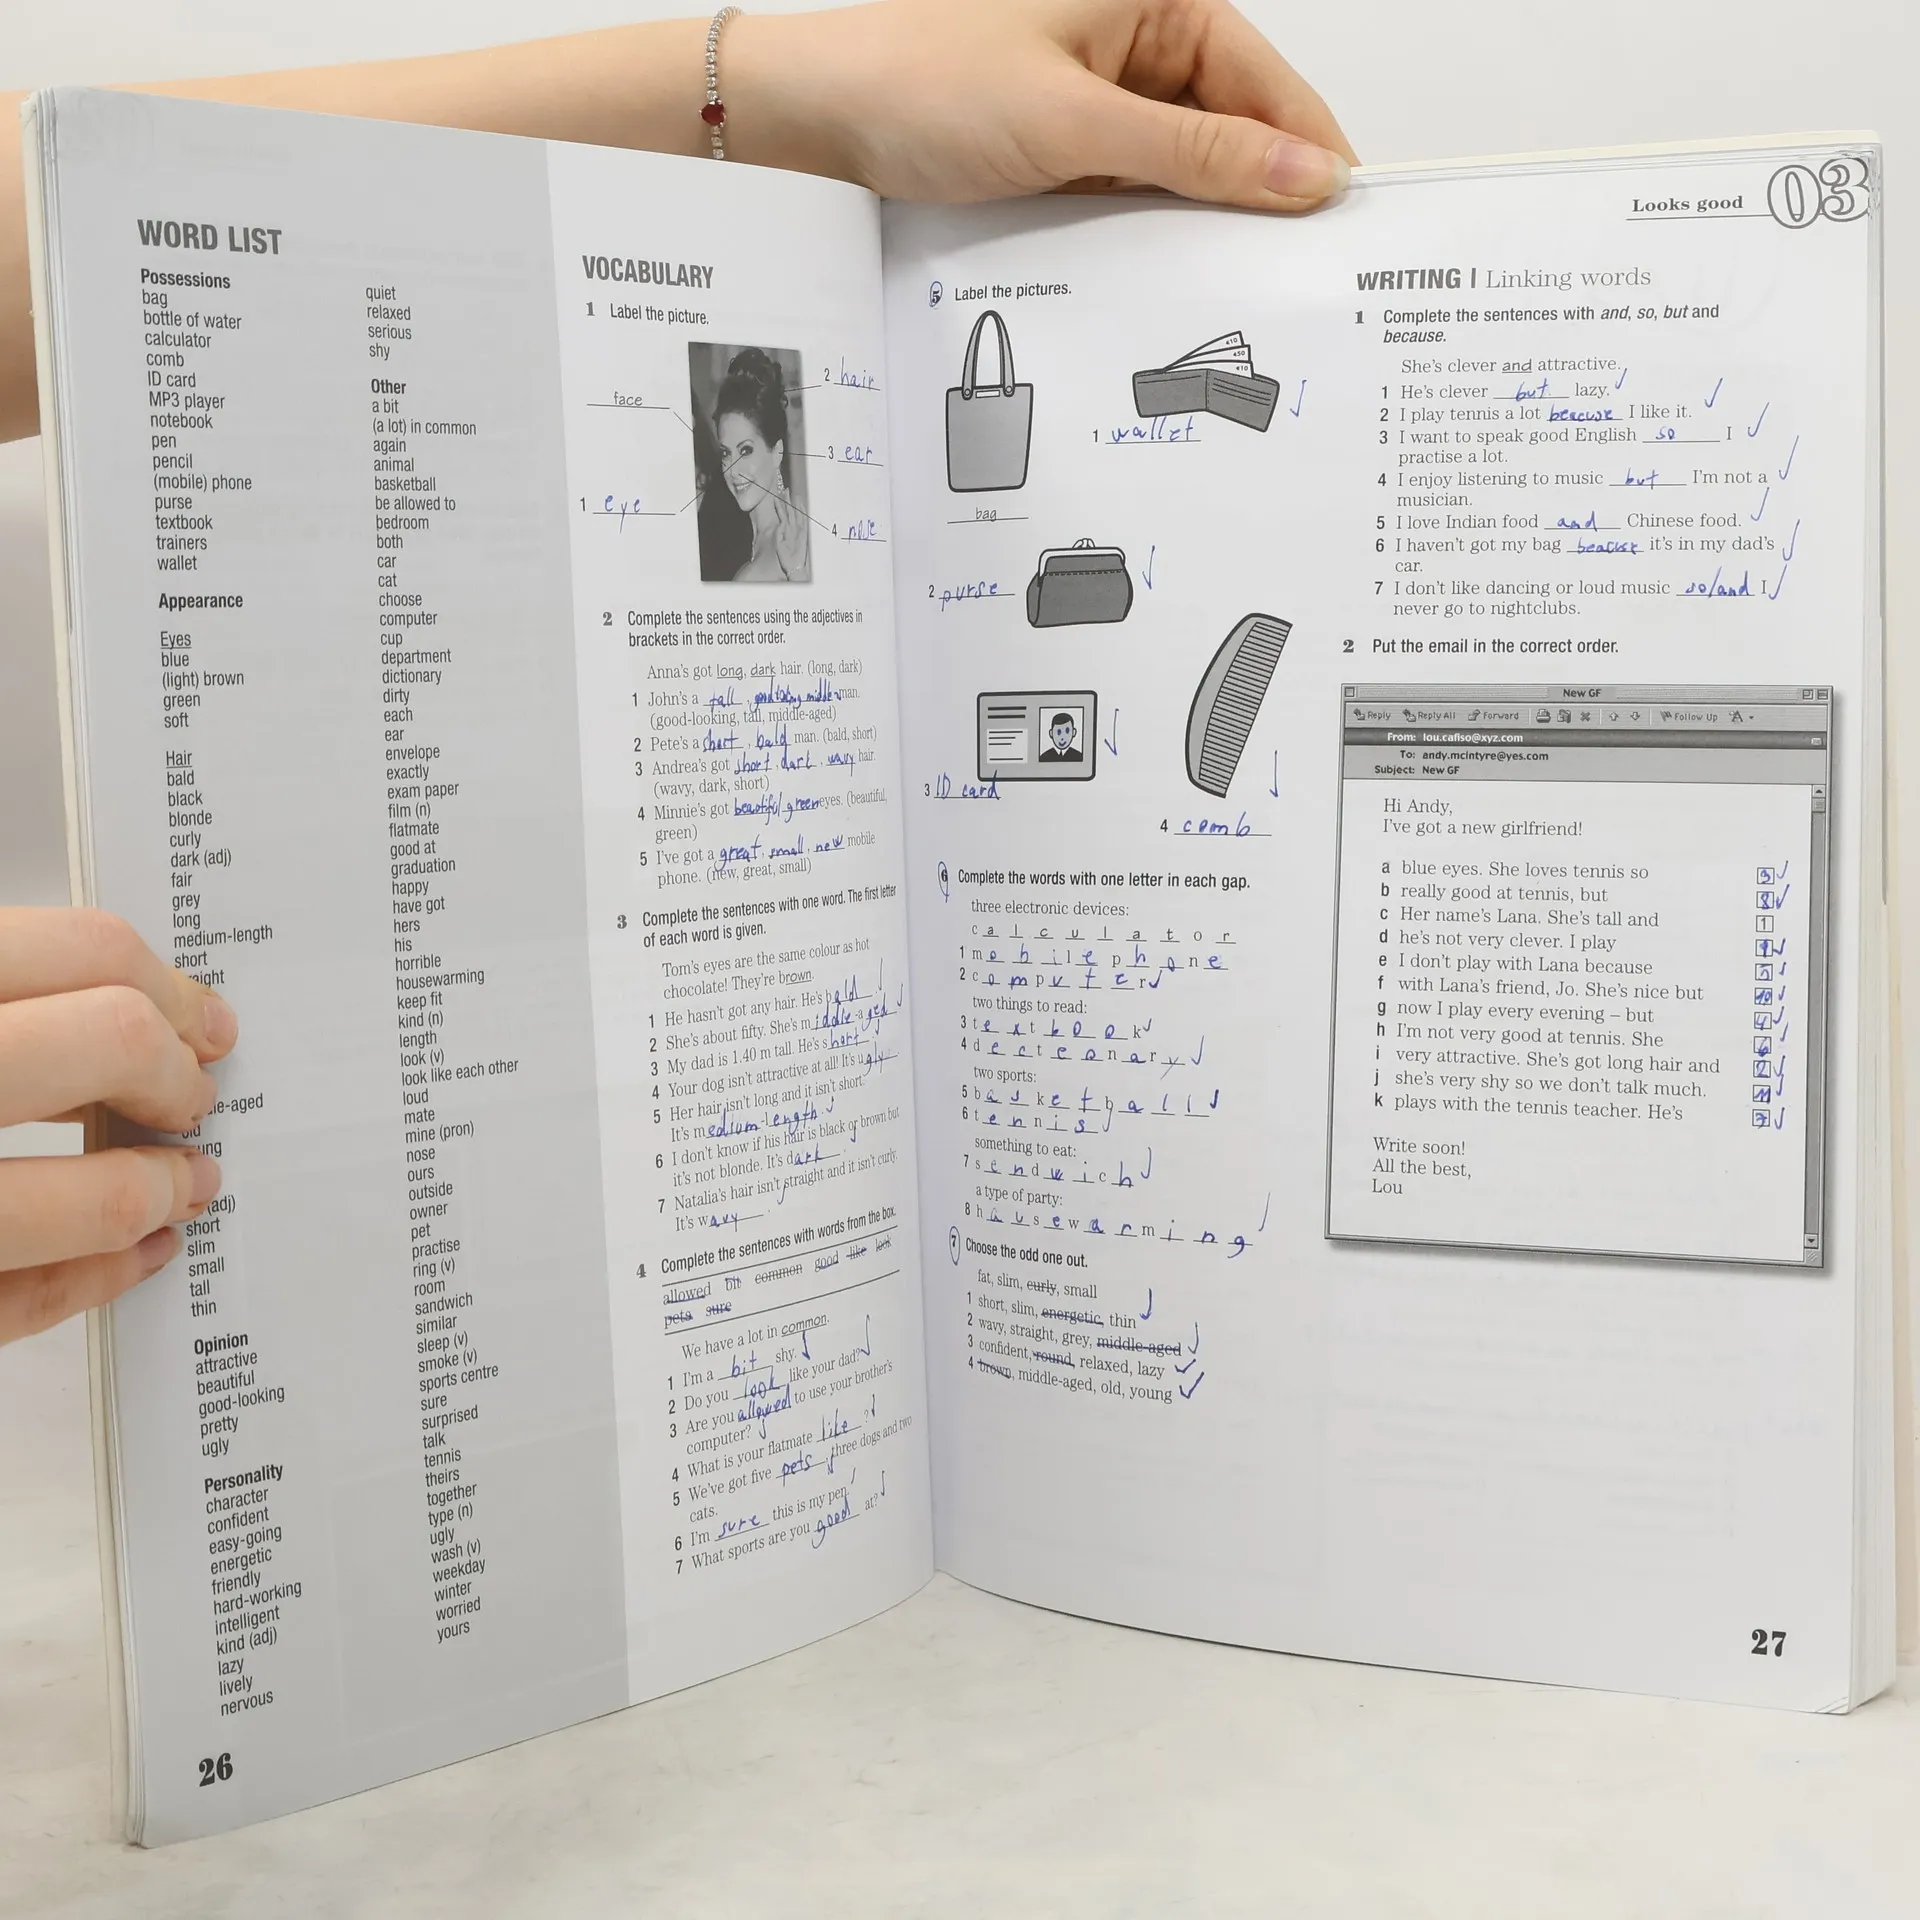 WORD LIST
Possessions
bag
bottle of water
calculator
comb
ID card
MP3 player
notebook
pen
pencil
(mobile) phone
purse
textbook
trainers
wallet
Appearance
Eyes
blue
(light) brown
green
soft
Hair
bald
black
blonde
curly
dark (adj)
fair
grey
long
medium-length
short
(adj)
short
slim
small
tall
thin
Opinion
attractive
beautiful
good-looking
pretty
ugly
Personality
character
confident
easy-going
energetic
friendly
hard-working
intelligent
kind (adj)
lazy
lively
nervous
26
quiet
relaxed
serious
shy
Other
a bit
(a lot) in common
again
animal
basketball
be allowed to
bedroom
both
car
cat
choose
computer
cup
department
dictionary
dirty
each
ear
envelope
exactly
exam paper
film (n)
flatmate
good at
graduation
happy
have got
hers
his
horrible
housewarming
keep fit
kind (n)
length
look (v)
look like each other
loud
mate
mine (pron)
nose
ours
outside
owner
pet
practise
ring (v)
room
sandwich
similar
sleep (v)
smoke (v)
sports centre
sure
surprised
talk
tennis
theirs
together
type (n)
ugly
wash (v)
weekday
winter
worried
yours
VOCABULARY
1 Label the picture.
face
2 hair
3 ear
1 eye
4 nose
2 Complete the sentences using the adjectives in
brackets in the correct order.
Anna's got long, dark hair. (long, dark)
1 John's a tall, man.
(good-looking, tall, middle-aged)
2 Pete's a short, bald man. (bald, short)
3 Andrea's got short, dark, wavy hair.
(wavy, dark, short)
4 Minnie's got beautiful green eyes. (beautiful,
green)
5 I've got a great, small, new mobile
phone. (new, great, small)
3 Complete the sentences with one word. The first letter
of each word is given.
Tom's eyes are the same colour as hot
chocolate! They're brown.
1 He hasn't got any hair. He's bald
2 She's about fifty. She's middle-aged
3 My dad is 1.40 m tall. He's short
4 Your dog isn't attractive at all! It's ugly
5 Her hair isn't long and it isn't short.
It's medium-length.
6 I don't know if his hair is black or brown but
it's not blonde. It's dark
7 Natalia's hair isn't straight and it isn't curly.
It's wavy
4 Complete the sentences with words from the box.
allowed bit common good like look
pets sure
We have a lot in common.
1 I'm a bit shy.
2 Do you look like your dad?
3 Are you allowed to use your brother's
computer?
4 What is your flatmate like ?
5 We've got five pets, three dogs and two
cats.
6 I'm sure this is my pen.
7 What sports are you good at?
Looks good 03
5 Label the pictures.
€10
€50
€10
1 wallet
bag
2 purse
3 ID card
4 comb
6 Complete the words with one letter in each gap.
three electronic devices:
c a l c u l a t o r
1 m o b i l e p h o n e
2 c o m p u t e r
two things to read:
3 t e x t b o o k
4 d e c t e o n a r y
two sports:
5 b a s k e t b a l l
6 t e n n i s
something to eat:
7 s e n d w i c h
a type of party:
8 h a u s e w a r m i n g
7 Choose the odd one out.
fat, slim, curly, small
1 short, slim, energetic, thin
2 wavy, straight, grey, middle-aged
3 confident, round, relaxed, lazy
4 brown, middle-aged, old, young
WRITING | Linking words
1 Complete the sentences with and, so, but and
because.
She's clever and attractive.
1 He's clever but lazy.
2 I play tennis a lot beacuse I like it.
3 I want to speak good English so I
practise a lot.
4 I enjoy listening to music but I'm not a
musician.
5 I love Indian food and Chinese food.
6 I haven't got my bag beacuse it's in my dad's
car.
7 I don't like dancing or loud music so/and I
never go to nightclubs.
2 Put the email in the correct order.
New GF
Reply Reply All Forward Follow Up A
From: lou.cafiso@xyz.com
To: andy.mcintyre@yes.com
Subject: New GF
Hi Andy,
I've got a new girlfriend!
a blue eyes. She loves tennis so
b really good at tennis, but 8
c Her name's Lana. She's tall and 1
d he's not very clever. I play
e I don't play with Lana because
f with Lana's friend, Jo. She's nice but 10
g now I play every evening – but 4
h I'm not very good at tennis. She 6
i very attractive. She's got long hair and 2
j she's very shy so we don't talk much. 11
k plays with the tennis teacher. He's
Write soon!
All the best,
Lou
27